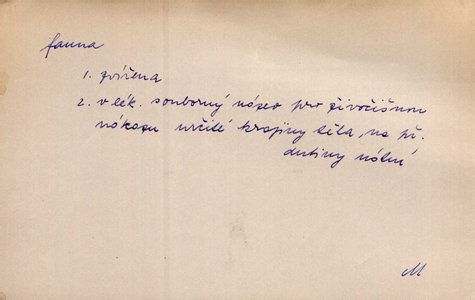 fauna
1. zvířena
2. v lék. souborný název pro živočišnou
nákazu určité krajiny těla, na př.
dutiny ústní
M